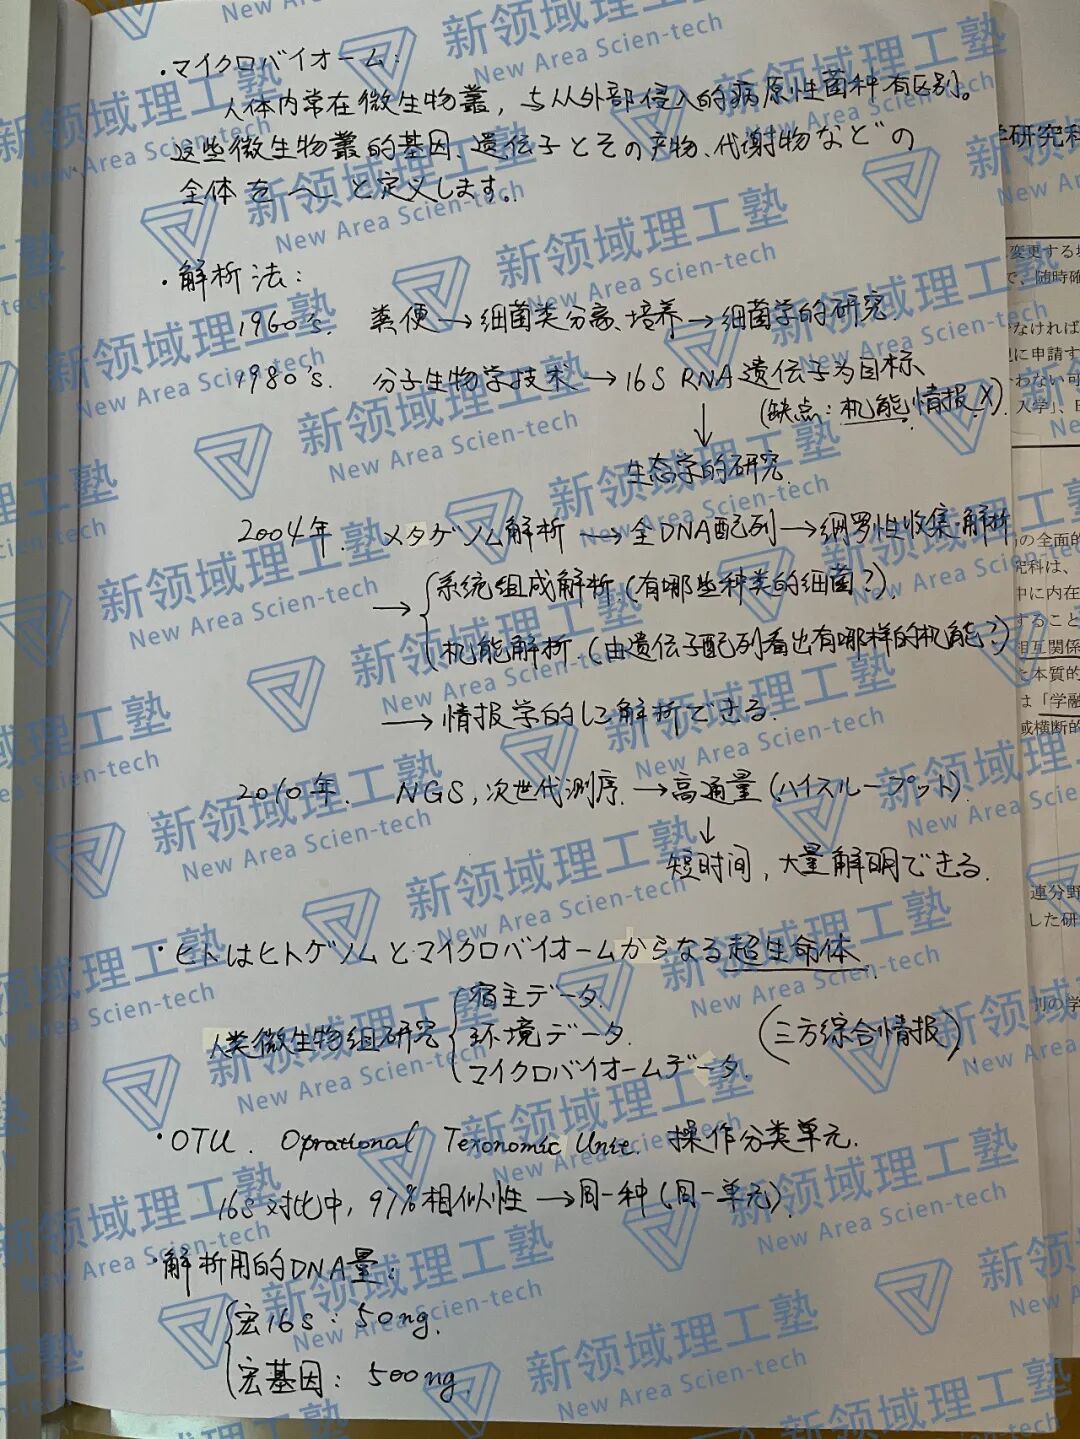 ・マイクロバイオーム：
人体内常在微生物叢，与从外部侵入的病原性菌种有区别。
这些微生物叢的基因、遺伝子とその产物、代谢物などの
全体を へ と定义します。
・解析法：
1960's. 粪便→细菌类分离、培养→细菌学的研究
1980's. 分子生物学技术→16S RNA遺伝子为目标、
(缺点：机能情报X).
↓
生态学的研究.
2004年. メタゲノム解析→全DNA配列→網罗性收集・解析
→{系统组成解析.(有哪些种类的细菌?).
机能解析.(由遺伝子配列看出有哪样的机能?)
→情报学的に解析できる.
2010年. NGS,次世代测序.→高通量(ハイスループット).
↓
短时间,大量解明できる.
・ヒトはヒトゲノムとマイクロバイオームからなる超生命体.
人类微生物组研究{宿主データ.
环境データ.
マイクロバイオームデータ.
(三方綜合情报)
・OTU. Oprational Texonomic Unit. 操作分类单元.
16s对比中, 97%相似性→同一种(同一单元).
・解析用的DNA量：
{宏16s：50ng.
宏基因：500ng.
新领域理工塾
New Area Scien-tech
学研究科
変更する
で、随時確
なければ
に申請す
わない可
入学」、
の全面的
究科は、
中に内在
すること
相互関係
本質的
は「学融
域横断的
連分野
した研
別の学